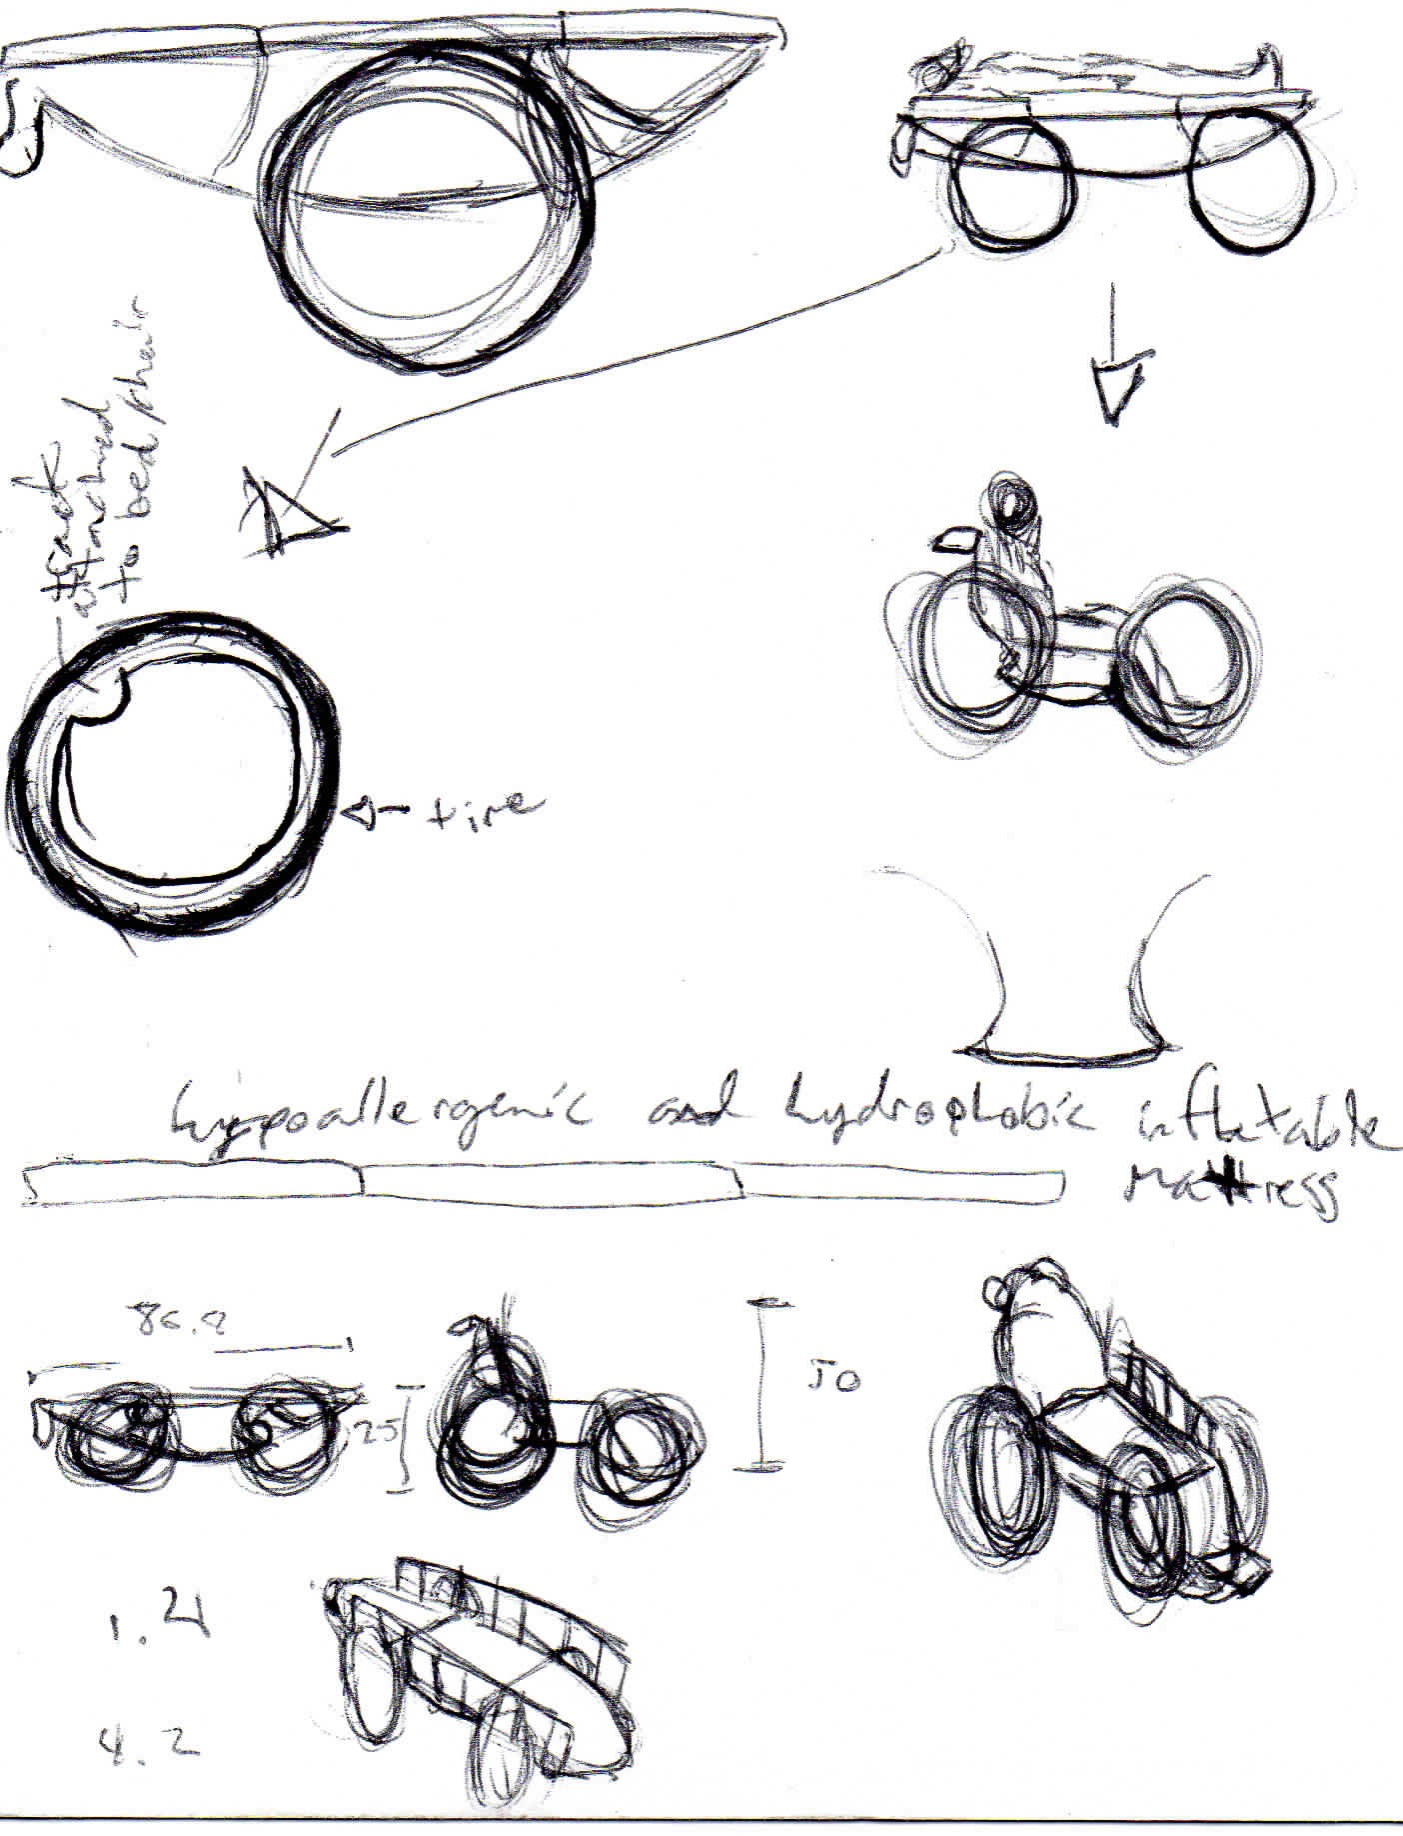 track
attached
to bed/chair
tire
hypoallergenic and hydrophobic inflatable
mattress
25
50
4.2